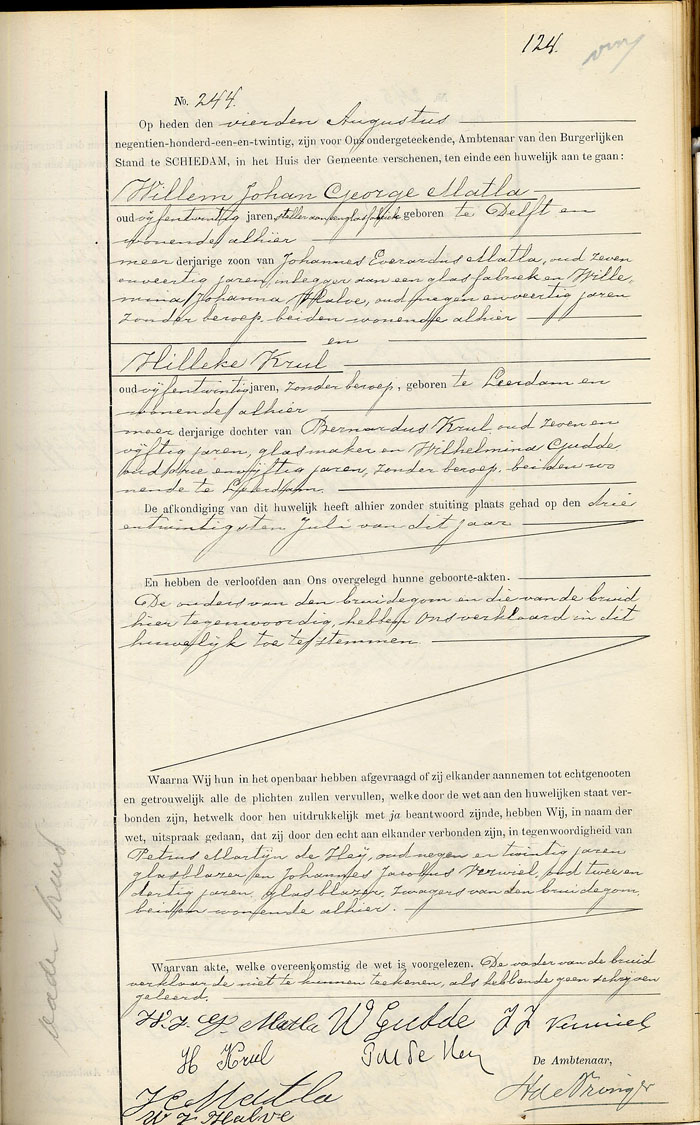 124.
No. 244.
Op heden den vierden Augustus
negentien-honderd-een-en-twintig, zijn voor Ons ondergeteekende, Ambtenaar van den Burgerlijken
Stand te SCHIEDAM, in het Huis der Gemeente verschenen, ten einde een huwelijk aan te gaan:
Willem Johan George Matla
oud vijfentwintig jaren, steller aan een glasfabriek geboren te Delft en
wonende alhier
meer derjarige zoon van Johannes Everardus Matla, oud zeven
en veertig jaren, inlegger aan een glasfabriek en Wille
mina Johanna Halve, oud negen en veertig jaren
zonder beroep, beiden wonende alhier
en
Hilleke Krul
oud vijfentwintig jaren, zonder beroep, geboren te Leerdam en
wonende alhier
meer derjarige dochter van Bernardus Krul oud zeven en
vijftig jaren, glasmaker en Wilhelmina Gudde
oud drie en vijftig jaren, zonder beroep, beiden wo
nende te Leerdam.
De afkondiging van dit huwelijk heeft alhier zonder stuiting plaats gehad op den drie
entwintigsten Juli van dit jaar
En hebben de verloofden aan Ons overgelegd hunne geboorte-akten.
De ouders van den bruidegom en die van de bruid
hier tegenwoordig, hebben Ons verklaard in dit
huwelijk toe te stemmen
Waarna Wij hun in het openbaar hebben afgevraagd of zij elkander aannemen tot echtgenooten
en getrouwelijk alle de plichten zullen vervullen, welke door de wet aan den huwelijken staat ver-
bonden zijn, hetwelk door hen uitdrukkelijk met ja beantwoord zijnde, hebben Wij, in naam der
wet, uitspraak gedaan, dat zij door den echt aan elkander verbonden zijn, in tegenwoordigheid van
Petrus Martijn de Heij, oud negen en twintig jaren
glasblazer en Johannes Jacobus Verwiel, oud twee en
dertig jaren, glasblazer, zwagers van den bruidegom,
beiden wonende alhier.
Waarvan akte, welke overeenkomstig de wet is voorgelezen. De vader van de bruid
verklaarde niet te kunnen teekenen, als hebbende geen schrijven
geleerd.
W. J. G. Matla W Gudde J J Verwiel
H Krul P M de Heij
De Ambtenaar,
J E Matla
W J Halve
vader Krul